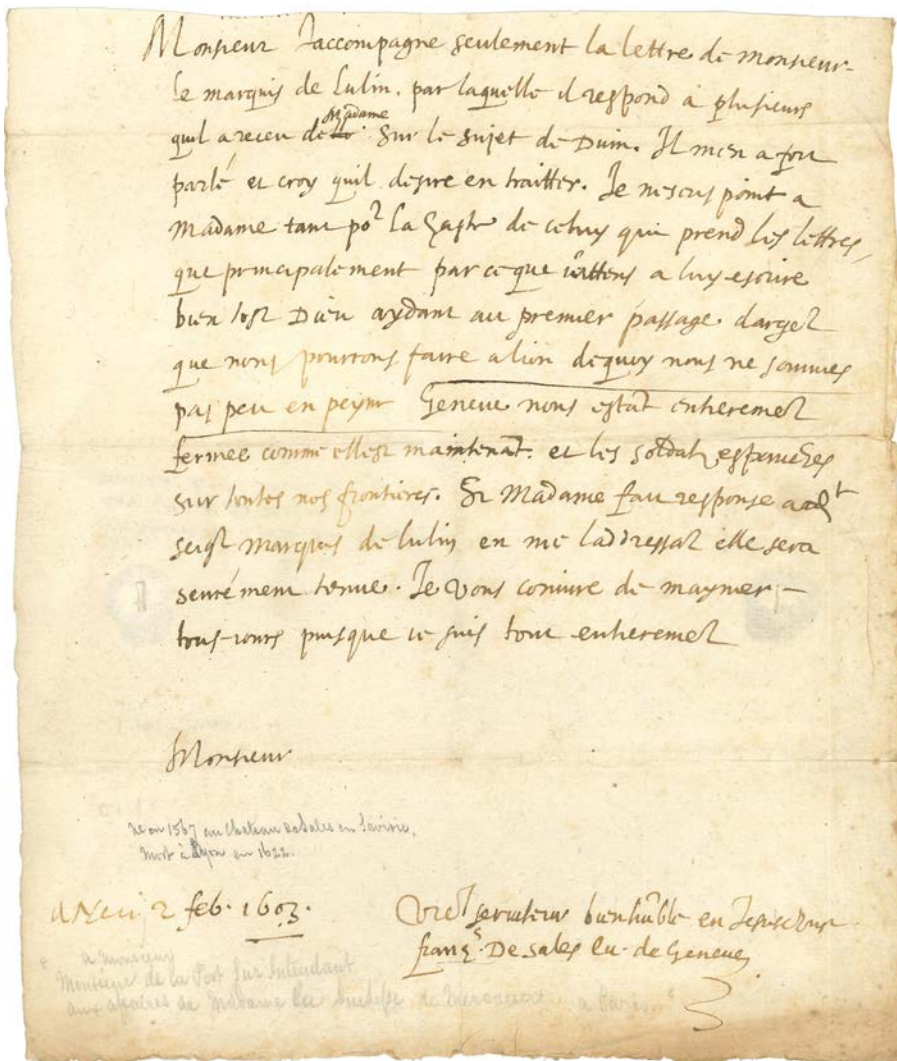 Monsieur Jaccompagne seulement la lettre de monsieur
le marquis de Lulin. par laquelle il respond a plusieurs
Madame
quil a receu de Sur le sujet de Duin. Il men a fort
parlé et croy quil desire en traitter. Je nescris point a
Madame tant por la haste de celuy qui prend les lettres,
que principalement par ce que iattens a luy escrire
bien tost Dieu aydant au premier passage dargẽt
que nous pourrons faire a lion dequoy nous ne sommes
pas peu en peyne Geneve nous estãt entieremẽt
fermee comme ellest maintenãt. et les soldatz
sur toutes nos frontieres. Si Madame fait response
seigr Marquis de lulin en me laddressãt elle sera
seurément tenue. Je vous coniure de maymer
tous-iours puisque ie suis tout entieremẽt
Monsieur
Né en 1567 au Chateau de Sales en Savoie,
Mort à Lyon en 1622.
2 feb. 1603.
serviteur bien hũble en
françs. De Sales Eu. de Geneve
a monsieur
Monsieur de la Port Sur Intendant
aux affaires de Madame la Duchesse de a Paris